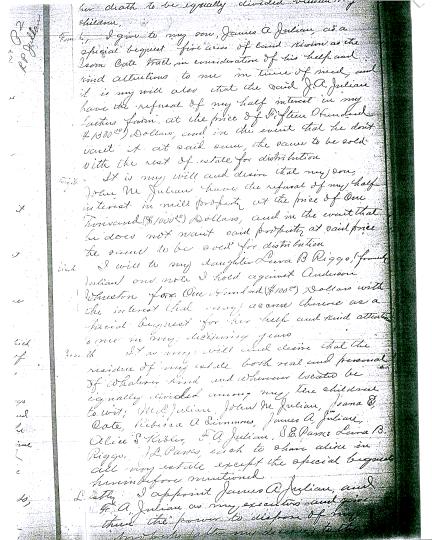 her death to be equally divided between my
children.
I give to my son, James A Julian, as a
special bequest five acres of land known as the
Cate in consideration of his help and
kind attentions to me in time of need, and
it is my will also that the said J.A. Julian
have the refusal of my half interest in my
fathers farm, at the price of Fifteen Hundred
Dollars, and in the event that he dont
want it at said sum, the same to be sold
with the rest of estate for distribution
It is my will and desire that my son,
John M Julian have the refusal of my half
interest in mill property at the price of One
Thousand ($1000.00) Dollars, and in the event that
he does not want said property at said price
the same to be sold for distribution
I will to my daughter Lena B Riggs, (formerly
Julian) one note I hold against Anderson
for One Hundred ($100.00) Dollars with
the interest that may accrue thereon as a
special bequest for her help and kind attentions
in my declining years
It is my will and desire that the
residue of my estate both real and personal
of whatever kind and wherever located be
equally divided among my ten children
to wit; M.C. Julian, John M. Julian, E.
Cate, A Simmons, James A Julian,
Alice S , F. A. Julian, S.E. Parks Lena B.
Riggs, each to share alike in
all my estate except the special bequests
hereinbefore mentioned
Lastly I appoint James A Julian, and
F. A. Julian as my executors and
the power to dispose of
R P Julian
82